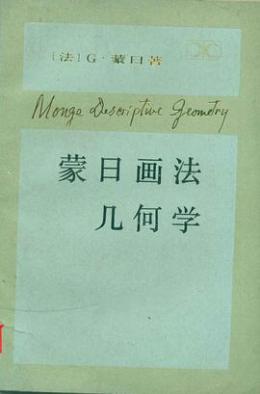 [法]G·蒙日著
Monge Descriptive Geometry
蒙日画法
几何学